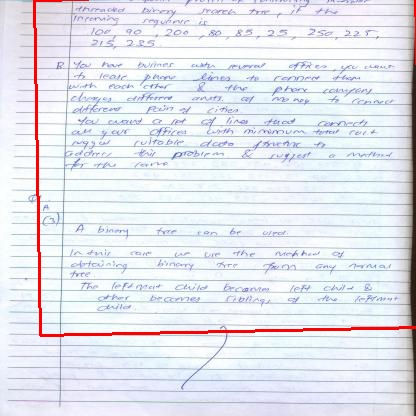 threaded binary search tree, if the
incoming sequence is
100, 90, 200, 80, 85, 25, 250, 225,
215, 235.
B. You have busines with several offices, you want
to lease phone lines to connect them
with each other & the phone company
charges different amts. of money to connect
different pairs of cities.
You want a set of lines that connects
all your offices with minimum total cost
suitable data structure to
address this problem & suggest a method
for the same
Q
A
(3)
A binary tree can be used.
In this case we use the method of
obtaining binary tree from any normal
tree.
The leftmost child becomes left child &
other becomes siblings of the leftmost
child.